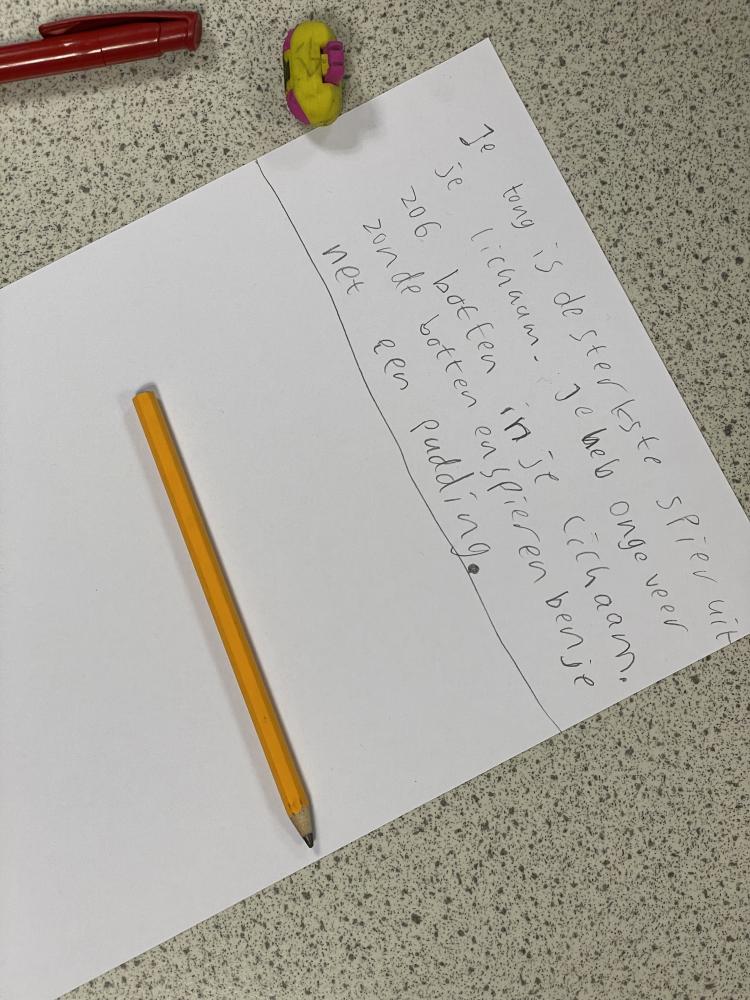 Je tong is de sterkste spier uit
je lichaam. Je heb ongeveer
206 botten in je lichaam.
zonde botten en spieren ben je
net een pudding.